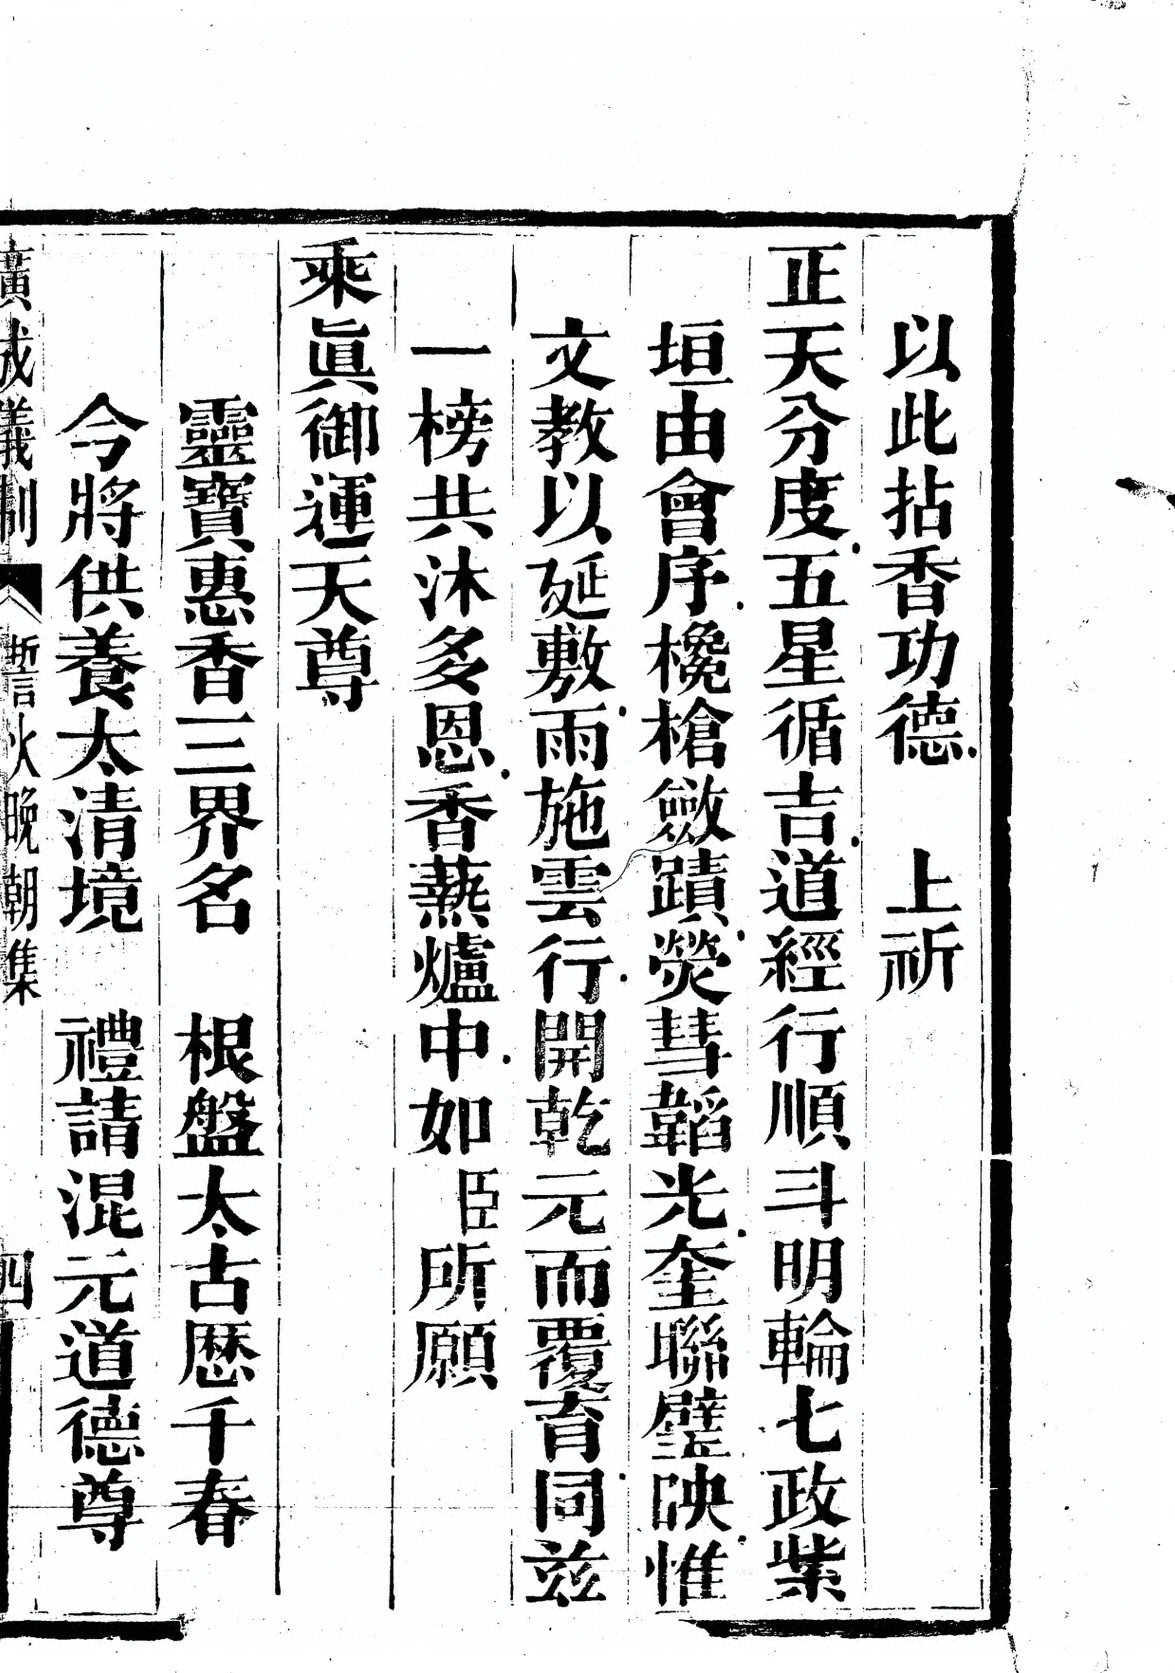 以此拈香功德　上祈
正天分度五星循吉道經行順斗明輪七政紫
垣由會序欃槍斂蹟熒彗韜光奎聯璧映惟
文教以延敷雨施雲行開乾元而覆育同兹
一榜共沐多恩香爇爐中如臣所願
乘眞御運天尊
靈寶惠香三界名　根盤太古歷千春
今將供養太清境　禮請混元道德尊
廣成儀制　誓火晚朝集　四